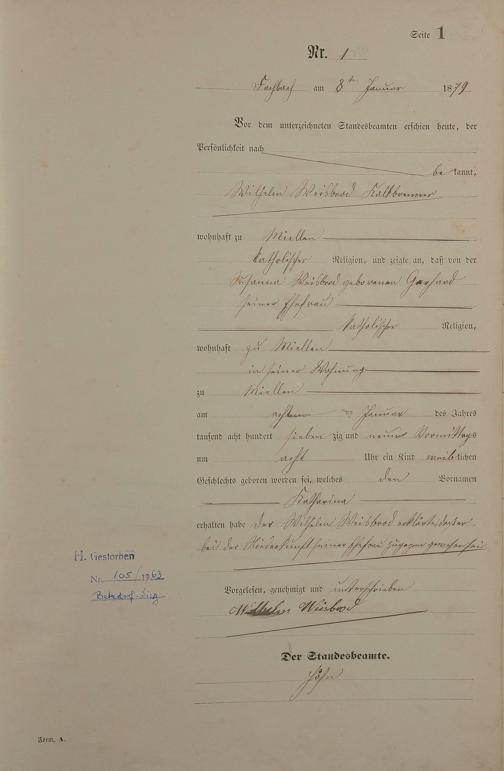 Seite 1
Nr. 1
Fachbach am 8ten Januar 1879
Vor dem unterzeichneten Standesbeamten erschien heute, der
Persönlichkeit nach
be kannt,
Wilhelm Weisbrod Kalkbrenner
wohnhaft zu Miellen
katholischer Religion, und zeigte an, daß von der
Susanna Weisbrod geborenen Gerhard
seiner Ehefrau
katholischer Religion,
wohnhaft zu Miellen
in seiner Wohnung
zu Miellen
am achten Januar des Jahres
tausend acht hundert sieben zig und neun Vormittags
um acht Uhr ein Kind weib lichen
Geschlechts geboren worden sei, welches den Vornamen
Katharina
erhalten habe Der Wilhelm Weisbrod erklärte, daß er
bei der Niederkunft seiner Ehefrau zugegen gewesen sei
H. Gestorben
Nr. 105/1963
Vorgelesen, genehmigt und unterschrieben
Wilhelm Weisbrod
Der Standesbeamte.
Form. A.